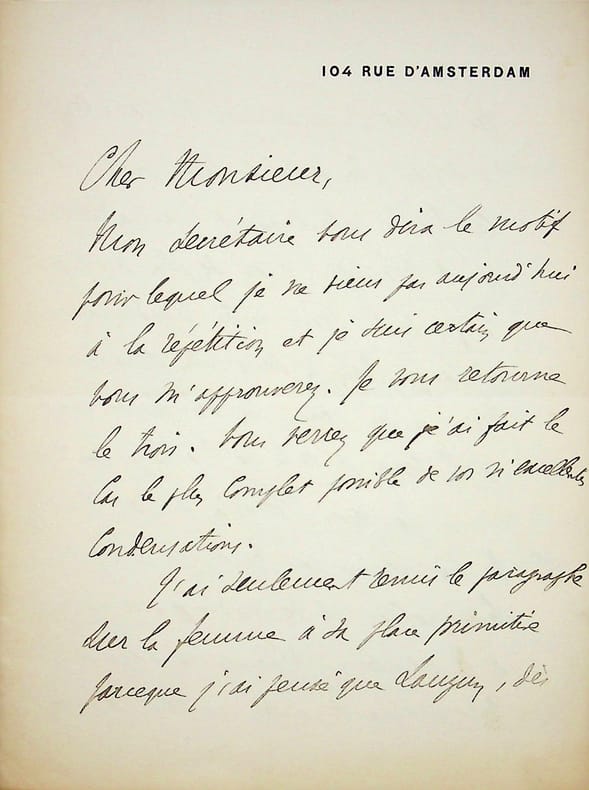 104 RUE D'AMSTERDAM
Cher Monsieur,
Mon secrétaire vous dira le motif
pour lequel je ne viens pas aujourd'hui
à la répétition et je suis certain que
vous m'approuverez. Je vous retourne
le trois. Vous verrez que j'ai fait le
cas le plus complet possible de vos si excellentes
condensations.
J'ai seulement remis le paragraphe
sur la femme à sa place primitive
parceque j'ai pensé que Lauzun, dès